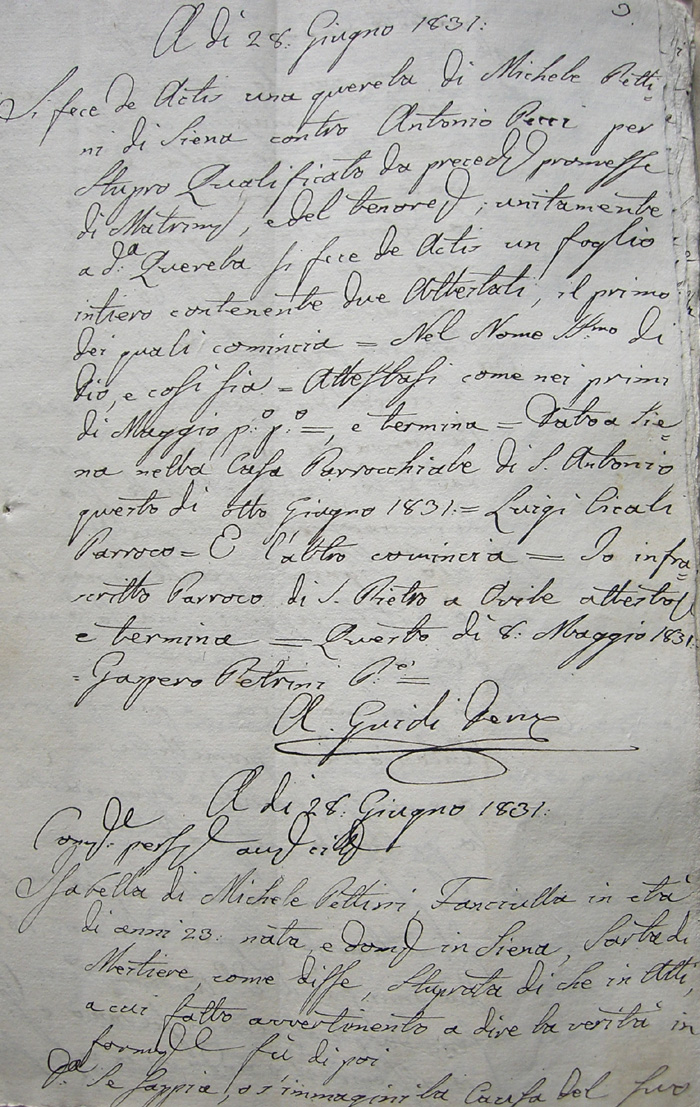 A di 28: Giugno 1831:
Si fece de Actis una querela di Michele Petti=
ni di Siena contro Antonio Pecci per
Stupro Qualificato da preced promesse
di Matrim, e del tenore; unitamente
a d.a Querela si fece de Actis un foglio
intiero contenente due Attestati, il primo
dei quali comincia = Nel Nome SS.mo di
Dio, e così sia = Attestasi come nei primi
di Maggio p.o p.o =, e termina = Dato a Sie=
na nella Casa Parrocchiale di S. Antonio
questo dì otto Giugno 1831 = Luigi Cicali
Parroco = E l'altro comincia = Io infra=
scritto Parroco di S. Pietro a Ovile attesto
e termina = Questo dì 8: Maggio 1831
= Gaspero Petrini P.e =
A. Guidi
A di 28: Giugno 1831:
Isabella di Michele Pettini, Fanciulla in età
di anni 23: nata, e dom in Siena, Sarta di
Mestiere, come disse, Stuprata di che in Atti,
a cui fatto avvertimento a dire la verità in
form fù di poi
Se sappia, o s'immagini la Causa del suo